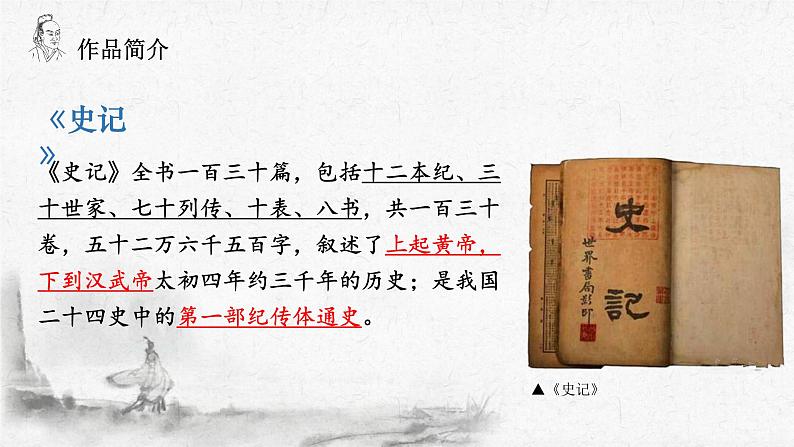 作品简介
《史记
》
《史记》全书一百三十篇，包括十二本纪、三
十世家、七十列传、十表、八书，共一百三十
卷，五十二万六千五百字，叙述了上起黄帝，
下到汉武帝太初四年约三千年的历史；是我国
二十四史中的第一部纪传体通史。
史记
世界书局影印
▲《史记》